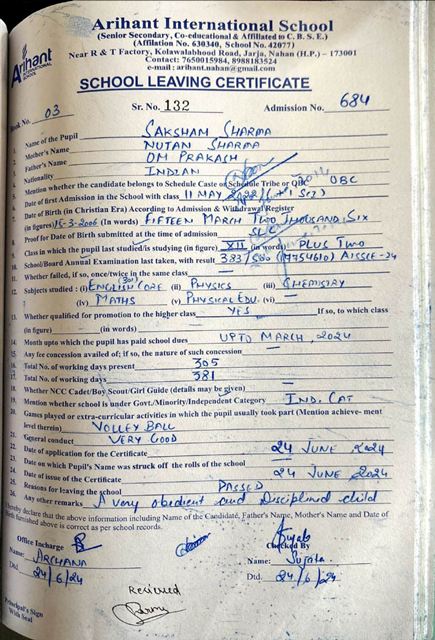 Arihant International School
(Senior Secondary, Co-educational & Affiliated to C. B. S. E.)
(Affilation No. 630340, School No. 42077)
Near R & T Factory, Kolawalabhood Road, Jarja, Nahan (H.P.) – 173001
Contact: 7650015984, 8988183524
e-mail : arihant.nahan@gmail.com
Arihant
SCHOOL LEAVING CERTIFICATE
Book No. 03 Sr. No. 132 Admission No. 684
1. Name of the Pupil SAKSHAM SHARMA
2. Mother's Name NUTAN SHARMA
3. Father's Name OM PRAKASH
Nationality INDIAN
Mention whether the candidate belongs to Schedule Caste or Schedule Tribe or OBC OBC
Date of first Admission in the School with class 11 MAY 2022
Date of Birth (in Christian Era) According to Admission & Withdrawal Register
(in figures) 15-3-2006 (In words) FIFTEEN MARCH TWO THOUSAND SIX
8. Proof for Date of Birth submitted at the time of admission SLC
9. Class in which the pupil last studied/is studying (in figure) XII (in words) PLUS TWO
School/Board Annual Examination last taken, with result 383/500 (17754610) AISSCE-24
Whether failed, if so, once/twice in the same class —
12. Subjects studied : (i) ENGLISH CORE (301) (ii) PHYSICS (iii) CHEMISTRY
(iv) MATHS (v) PHYSICAL EDU. (vi) —
13. Whether qualified for promotion to the higher class YES If so, to which class
(in figure) (in words) —
14. Month upto which the pupil has paid school dues UPTO MARCH, 2024
15. Any fee concession availed of; if so, the nature of such concession —
16. Total No. of working days 305
17. Total No. of working days present 381
18. Whether NCC Cadet/Boy Scout/Girl Guide (details may be given) —
19. Mention whether school is under Govt./Minority/Independent Category IND. CAT
20. Games played or extra-curricular activities in which the pupil usually took part (Mention achieve- ment
level therein) VOLLEY BALL
21. General conduct VERY GOOD
22. Date of application for the Certificate 24 JUNE 2024
23. Date on which Pupil's Name was struck off the rolls of the school —
24. Date of issue of the Certificate 24 JUNE 2024
25. Reasons for leaving the school PASSED
26. Any other remarks A very obedient and Disciplined child
I hereby declare that the above information including Name of the Candidate, Father's Name, Mother's Name and Date of
Birth furnished above is correct as per school records.
Office Incharge
Checked By
Name: ARCHANA Name: Sujata
Dtd. 24/6/24 Dtd. 24/6/24
Recieved
Principal's Sign
With Seal